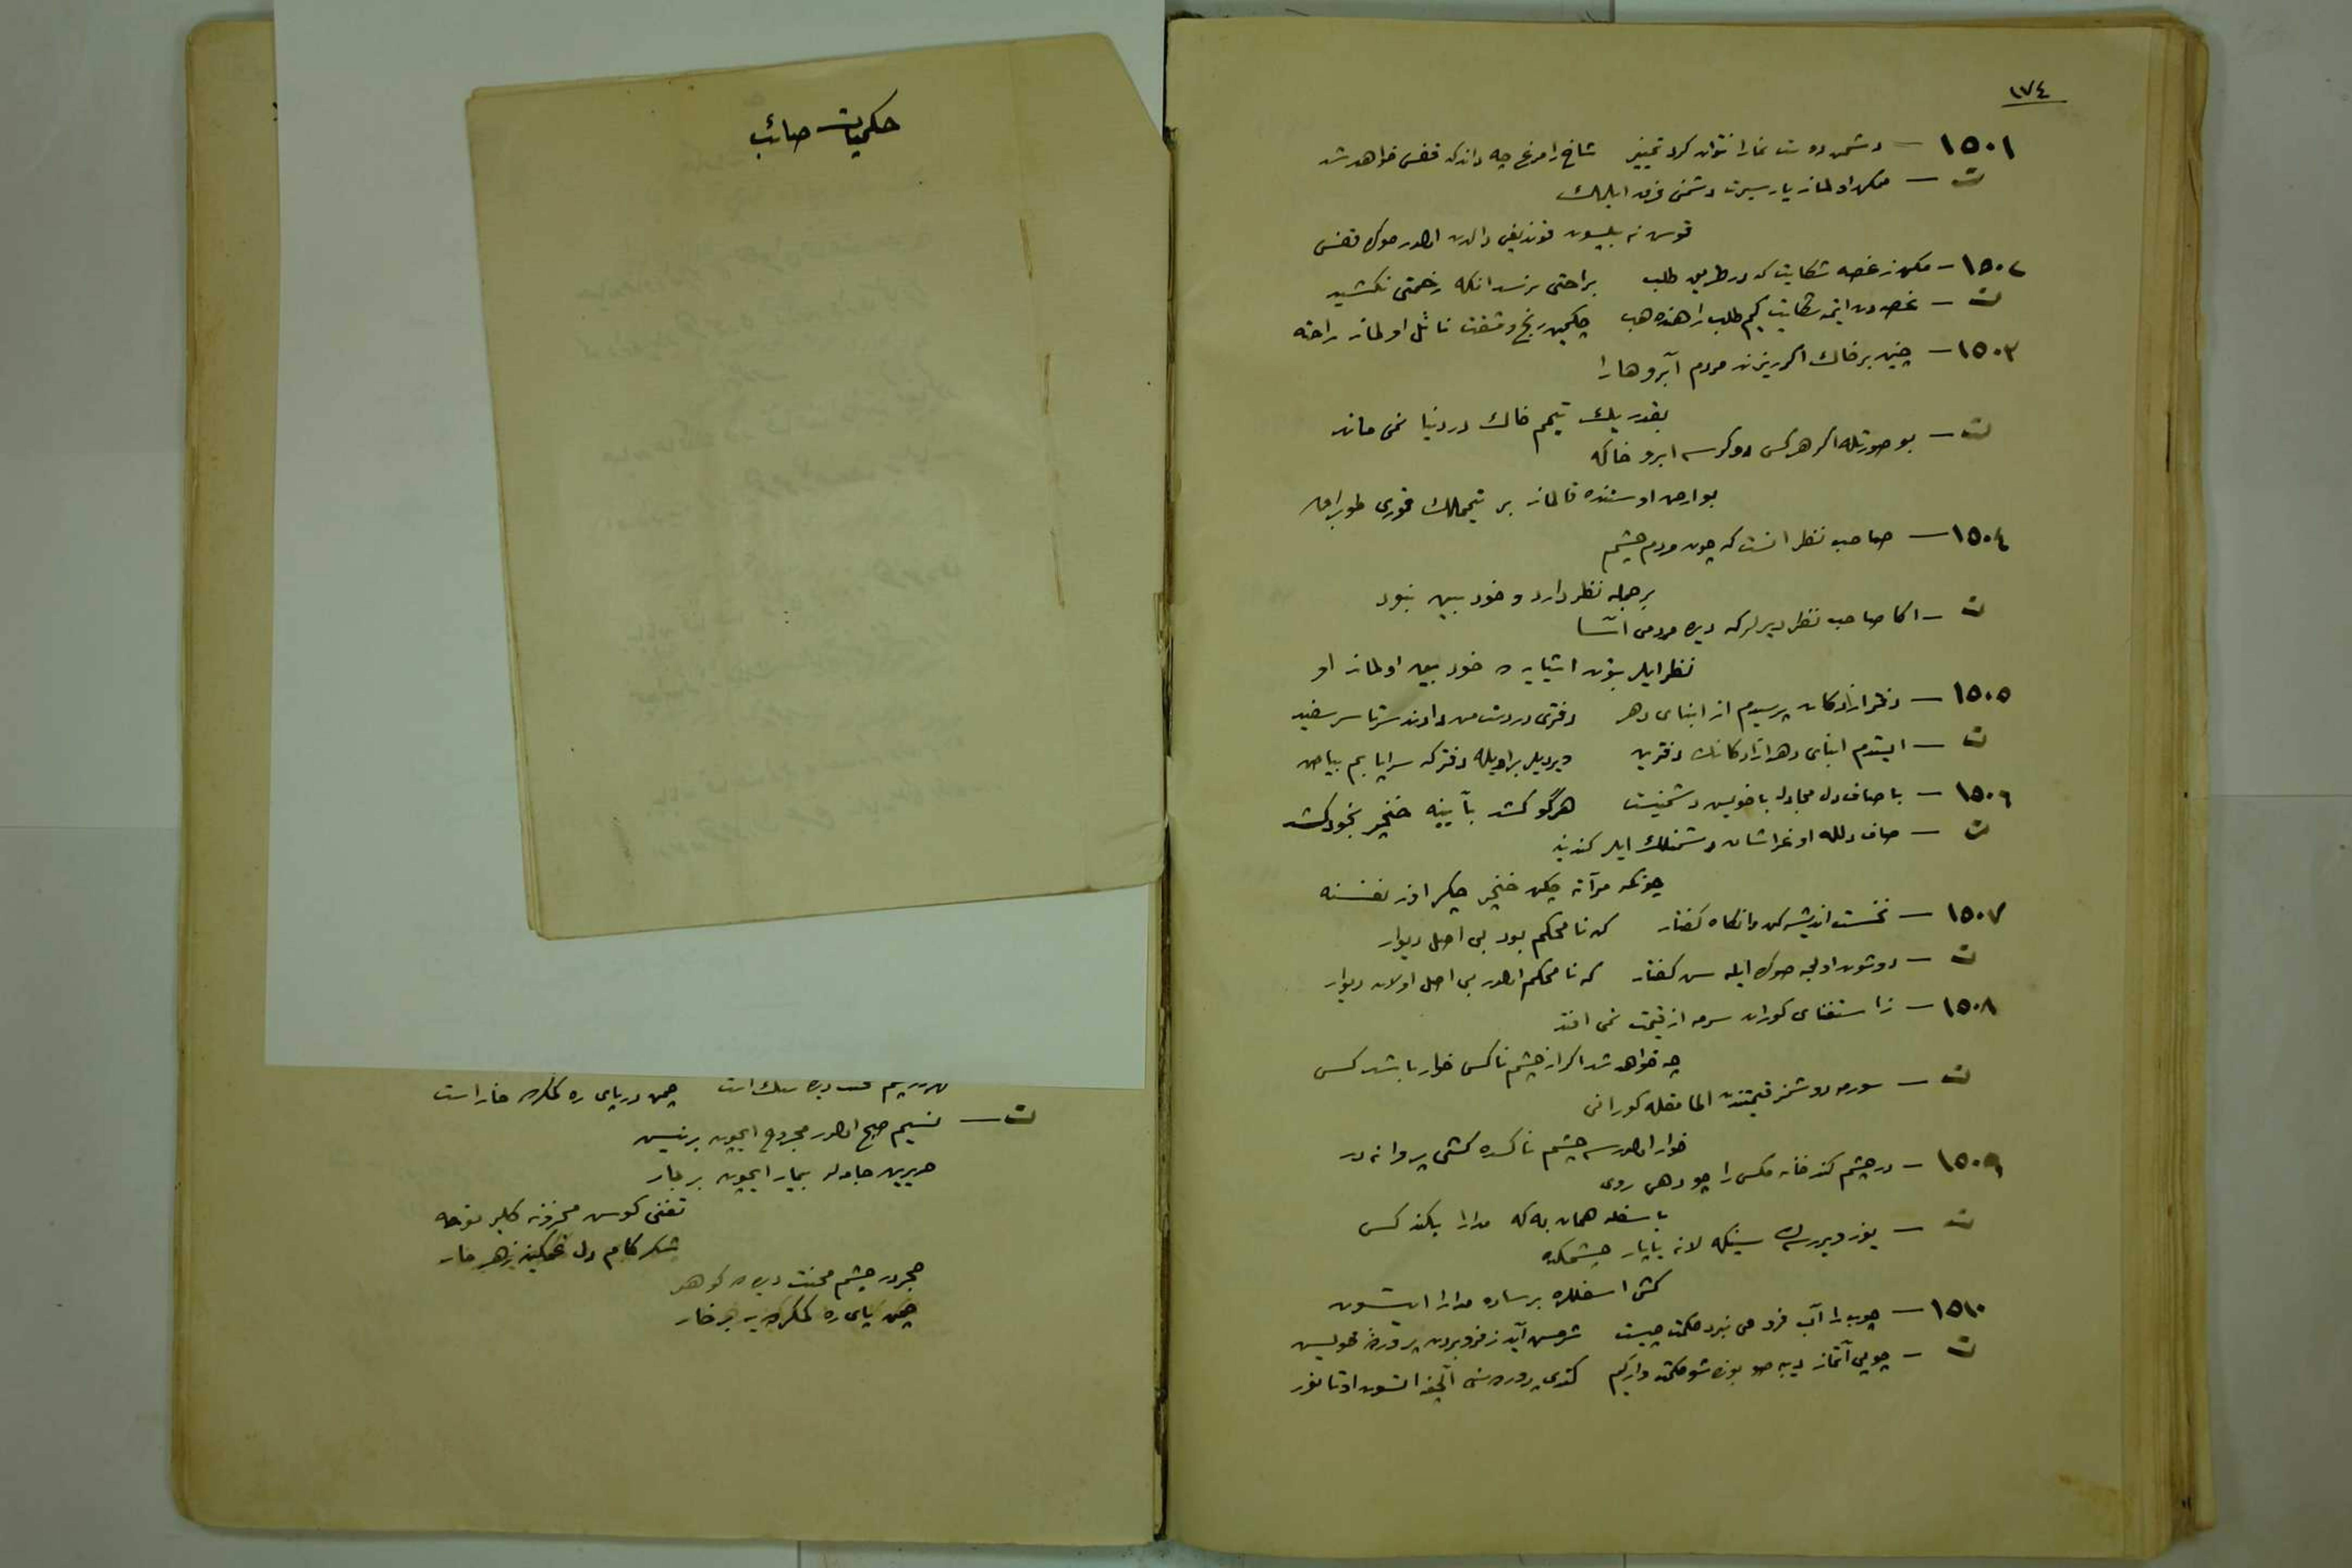 ١٧٤
١٥٠١ — دشمن دوست نما را نتوان کرد تمییز شاخ را مرغ چه داند که قفس خواهد شد
ت — ممکن اولماز یار سیرت دشمنی فرق ایلمك
قوس نه بیلسون قوندیغی دالدن اولور صوك قفس
١٥٠٢ — مکن ز غصه شکایت که در طریق طلب براحتی نرسد انکه زحمتی نکشید
ت — غصه دن ایتمه شکایت کیم طلب راهنده هب چکمین رنج و مشقت نائل اولماز راحته
١٥٠٣ — چنین بر خاك اکر ریزند مردم آبروها را
بقدر یك تیمم خاك در دنیا نمی ماند
ت — بو صورتله اکر هرکس دوکرسه ابرو خاکه
بو ارض اوستنده قالماز بر تیمملك قوری طوپراق
١٥٠٤ — صاحب نظر انست که چون مردم چشم
بر جمله نظر دارد و خود بین نبود
ت — اکا صاحب نظر دیرلر که دیده مردمی اسا
نظر ایلر بتون اشیایه خود بین اولماز او
١٥٠٥ — دفتر ازادکان پرسیدم از ابنای دهر دفتری در دست من دادند سرتاسر سفید
ت — ایستدم ابنای دهر ازادکانك دفترین ویردیلر براویله دفتر که سراپا بم بیاض
١٥٠٦ — با صاف دل مجادله با خویش دشمنیست هرکو کشد بآیینه خنجر بخود کشد
ت — صاف دلله اوغراشان دشمنلك ایلر کندینه
چونکه مرآته چکن خنجر چکر اوز نفسنه
١٥٠٧ — نخست اندیشه کن وانکاه کفتار که نامحکم بود بی اصل دیوار
ت — دوشون اولجه صوكره ایله سن کفتار که نامحکم اولور بی اصل اولان دیوار
١٥٠٨ — ز استغنای کوران سرمه از قیمت نمی افتد
چه خواهد شد اکر از چشم ناکس خوار باشد کسی
ت — سورمه دوشمز قیمتندن المامقله کورانی
خوار اولورسه چشم ناکسده کشی پروا نه در
١٥٠٩ — در چشم کند خانه مکس را چو دهی روی
با سفله همان به که مدارا نکند کس
ت — یوز ویررسك سینکه لانه یاپار چشمکده
کشی اسفلره بر ساده مدارا ایتسون
١٥١٠ — چوب را آب فرو می نبرد حکمت چیست شرمش آید ز فرو بردن پروردهٔ خویش
ت — چوبی آتماز دیبه صو بونده شو حکمت وار کیم کندی پرورده سنی آلچقه السون اوتانور
حکمیات صائب
چمن در پای ره کمکرده خار است
ت — نسیم صبح اولور مجروح ایچون بر نیش
حریرین جامه لر بیمار ایچون بر بار
تغنی کوش محزونه کلیر نوحه
شکر کام دل غمکینه زهر مار
حجر در چشم محنت دیده ده کوهر
چمن پای ره کمکرده یه بر خار